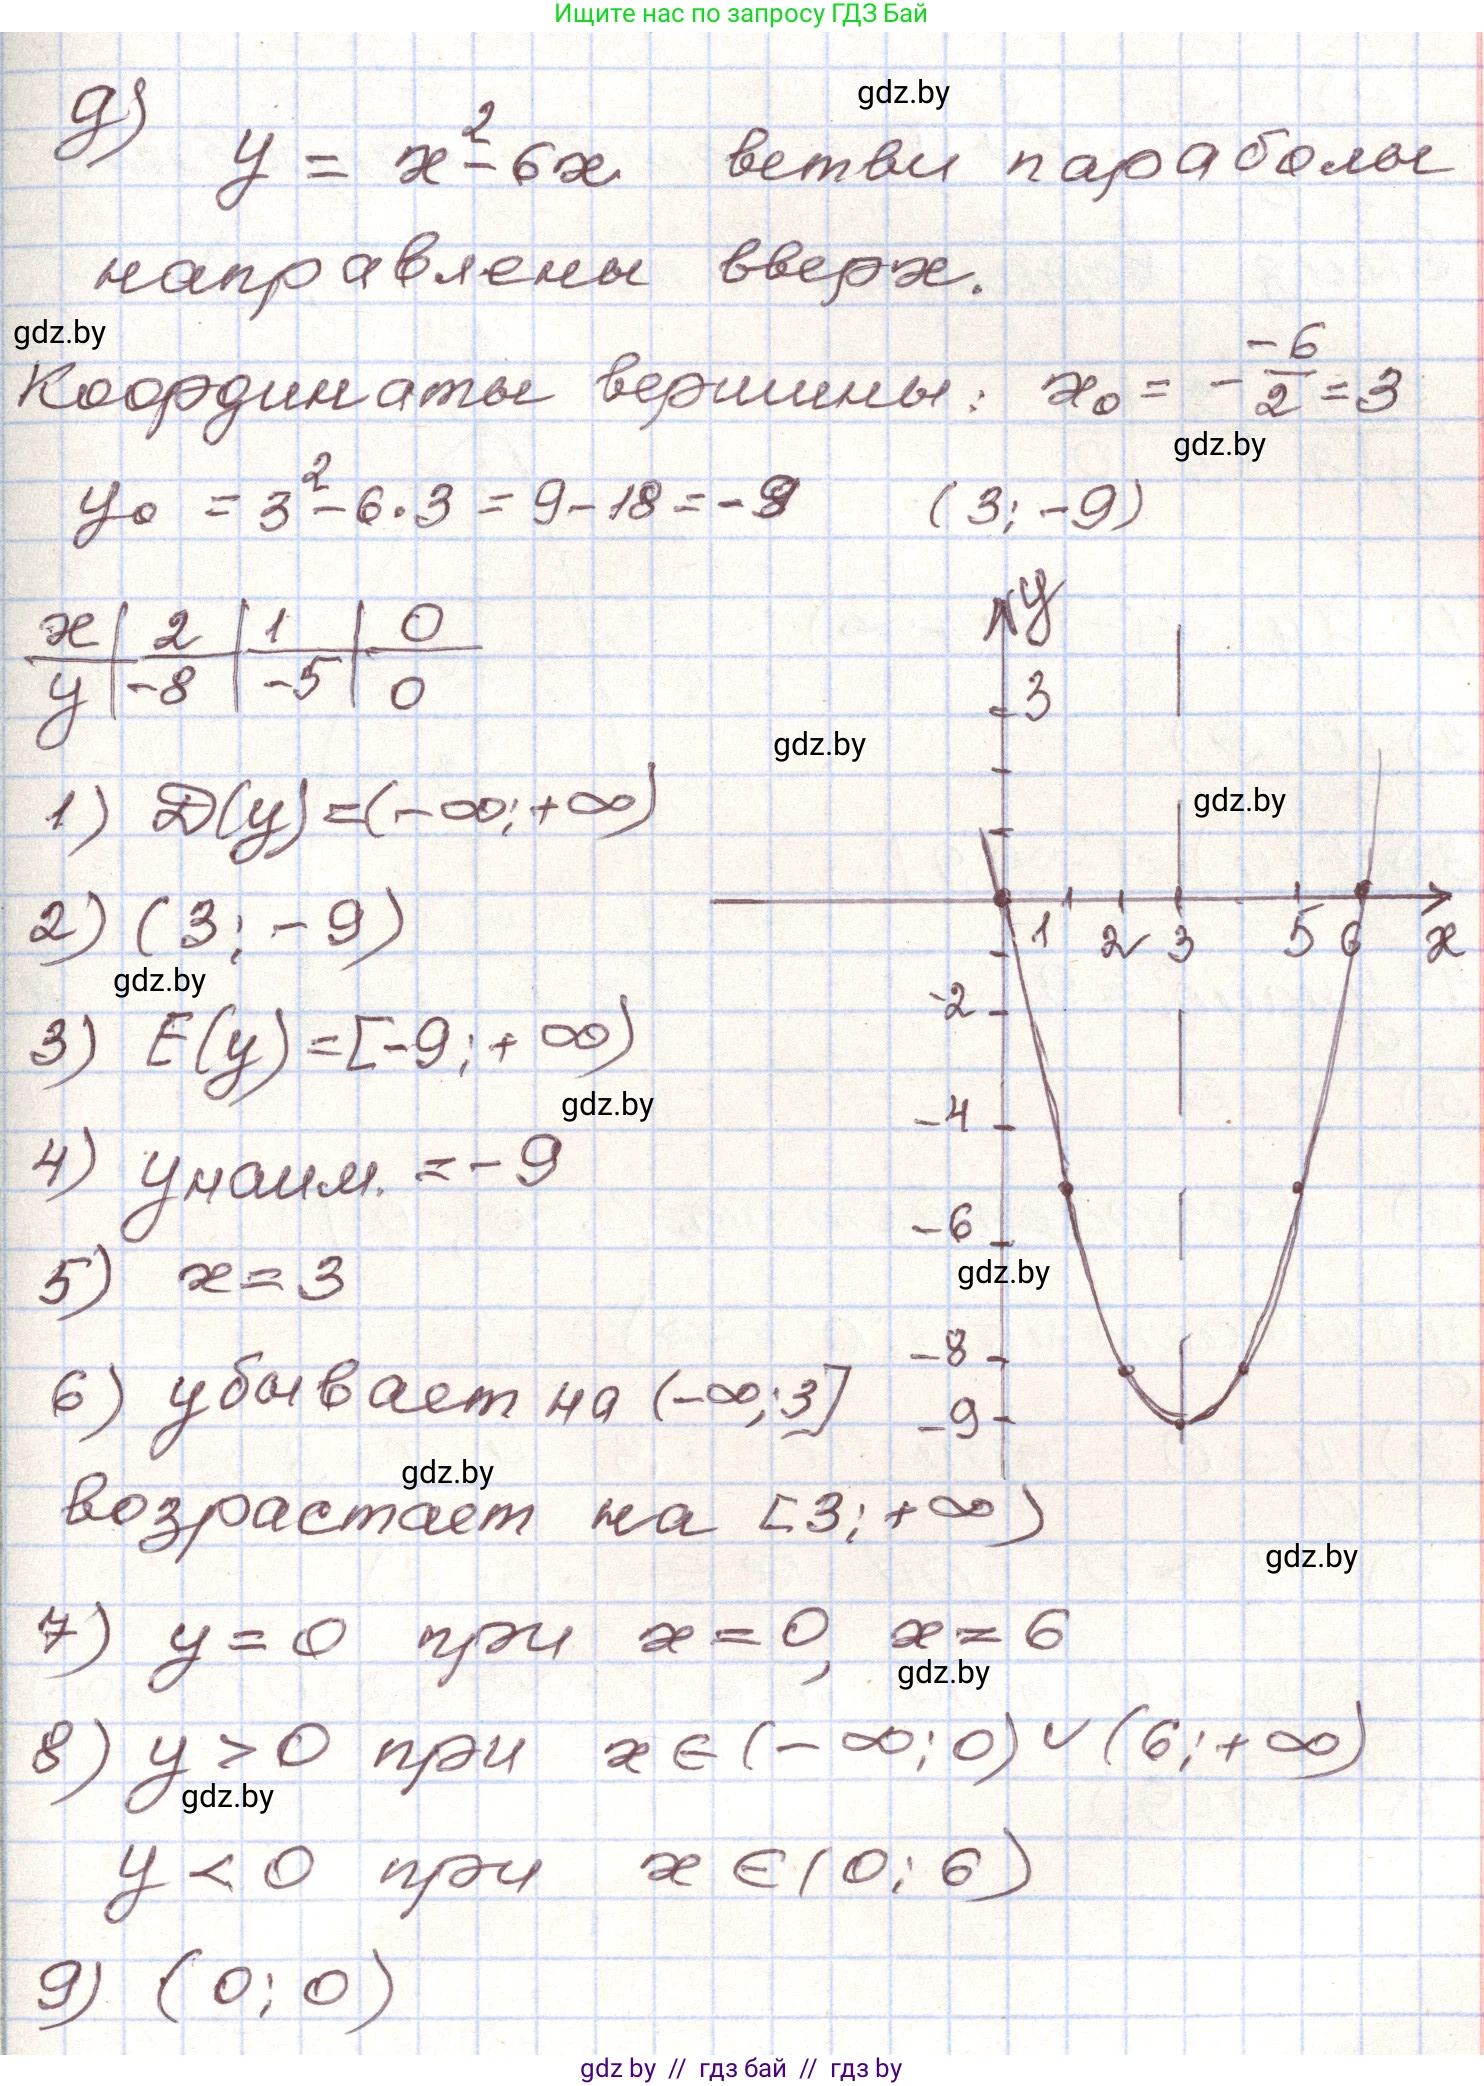 Ищите нас по запросу ГДЗ Бай
gdz.by
д) y = x² - 6x ветви параболы
направлены вверх.
gdz.by
Координаты вершины: x₀ = - -6/2 = 3
gdz.by
y₀ = 3² - 6·3 = 9 - 18 = -9 (3; -9)
x | 2 | 1 | 0
y | -8 | -5 | 0
y
3
gdz.by
gdz.by
1) D(y) = (-∞; +∞)
1 2 3 5 6 x
2) (3; -9)
gdz.by
-2
3) E(y) = [-9; +∞)
gdz.by
-4
4) y наим. = -9
-6
gdz.by
5) x = 3
-8
6) убывает на (-∞; 3]
-9
gdz.by
возрастает на [3; +∞)
gdz.by
7) y = 0 при x = 0, x = 6
gdz.by
8) y > 0 при x ∈ (-∞; 0) ∪ (6; +∞)
gdz.by
y < 0 при x ∈ (0; 6)
9) (0; 0)
gdz.by // гдз бай // гдз by